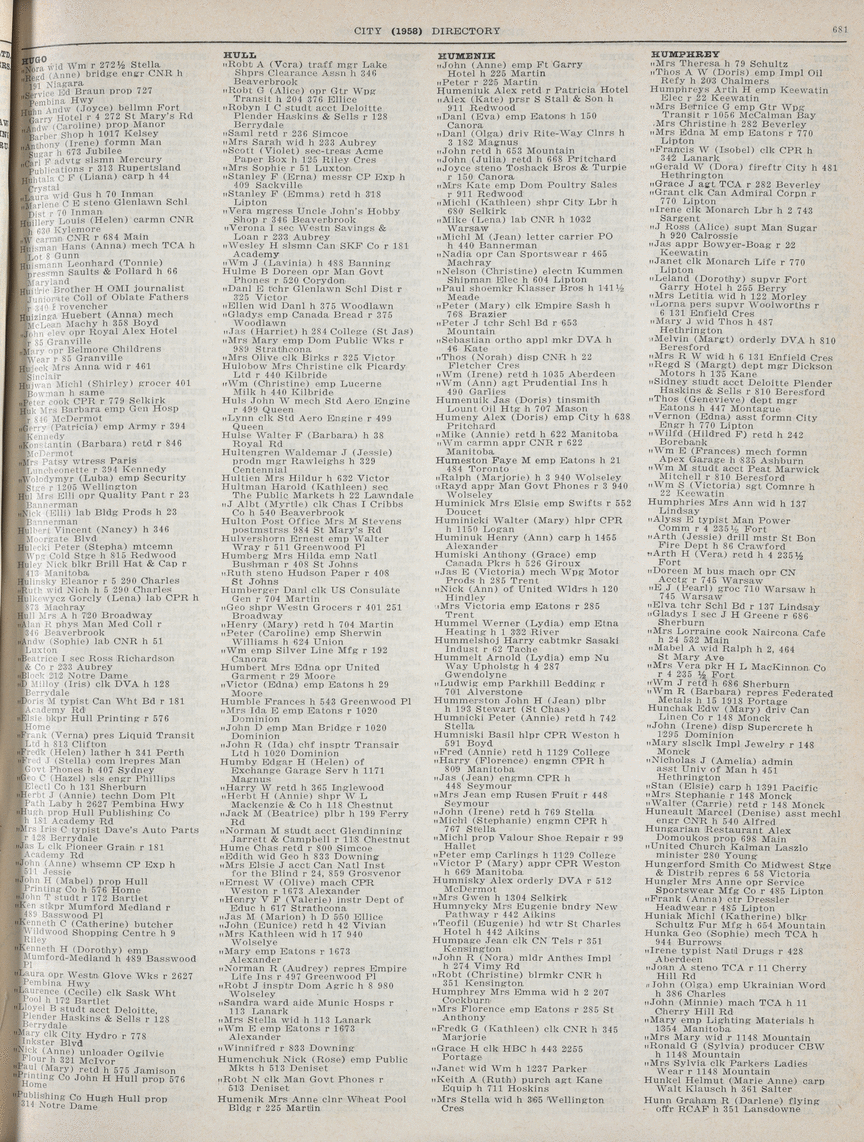 CITY (1958) DIRECTORY
681
HUGO
„Nora wid Wm r 272½ Stella
„Regd (Anne) bridge engr CNR h
191 Niagara
„Service Ed Braun prop 727
Pembina Hwy
Huhn Andw (Joyce) bellmn Fort
Garry Hotel r 4 272 St Mary's Rd
„Andw (Caroline) prop Manor
Barber Shop h 1017 Kelsey
„Anthony (Irene) formn Man
Sugar h 673 Jubilee
„Carl F advtg slsmn Mercury
Publications r 313 Rupertsland
Huhtala C F (Liana) carp h 44
Crystal
„Laura wid Gus h 70 Inman
„Marlene C E steno Glenlawn Schl
Dist r 70 Inman
Huillery Louis (Helen) carmn CNR
h 630 Kylemore
„W carmn CNR r 684 Main
Huisman Hans (Anna) mech TCA h
Lot 8 Gunn
Huismann Leonhard (Tonnie)
pressmn Saults & Pollard h 66
Maryland
Brother H OMI journalist
Juniorate Coll of Oblate Fathers
r 340 Provencher
Huizinga Huebert (Anna) mech
McLean Machy h 358 Boyd
„John elev opr Royal Alex Hotel
r 85 Granville
„Mary opr Belmore Childrens
Wear r 85 Granville
Hujeek Mrs Anna wid r 461
Sinclair
Hujwan Michl (Shirley) grocer 401
Bowman h same
„Peter cook CPR r 779 Selkirk
Huk Mrs Barbara emp Gen Hosp
r 846 McDermot
„Gerry (Patricia) emp Army r 394
Kennedy
„Konstantin (Barbara) retd r 846
McDermot
„Mrs Patsy wtress Paris
Luncheonette r 394 Kennedy
„Wolodymyr (Luba) emp Security
Stge r 1205 Wellington
Hul Mrs Elli opr Quality Pant r 23
Bannerman
„Nick (Elli) lab Bldg Prods h 23
Bannerman
Hulbert Vincent (Nancy) h 346
Moorgate Blvd
Hulecki Peter (Stepha) mtcemn
Wpg Cold Stge h 815 Redwood
Huley Nick blkr Brill Hat & Cap r
413 Manitoba
Hulinsky Eleanor r 5 290 Charles
„Ruth wid Nich h 5 290 Charles
Hulkewycz Gorcly (Lena) lab CPR h
873 Machray
Hull Mrs A h 720 Broadway
„Alan R phys Man Med Coll r
346 Beaverbrook
„Andw (Sophie) lab CNR h 51
Luxton
„Beatrice I sec Ross Richardson
& Co r 233 Aubrey
„Block 212 Notre Dame
„D Milloy (Iris) clk DVA h 128
Berrydale
„Doris M typist Can Wht Bd r 181
Academy Rd
„Elsie bkpr Hull Printing r 576
Home
„Frank (Verna) pres Liquid Transit
Ltd h 813 Clifton
„Fredk (Helen) lather h 341 Perth
„Fred J (Stella) com lrepres Man
Govt Phones h 407 Sydney
„Geo C (Hazel) sls engr Phillips
Electl Co h 131 Sherburn
„Herbt J (Annie) techn Dom Plt
Path Laby h 2627 Pembina Hwy
„Hugh prop Hull Publishing Co
h 181 Academy Rd
„Mrs Iris C typist Dave's Auto Parts
r 128 Berrydale
„Jas L clk Pioneer Grain r 181
Academy Rd
„John (Anne) whsemn CP Exp h
511 Jessie
„John H (Mabel) prop Hull
Printing Co h 576 Home
„John T studt r 172 Bartlet
„Ken slkpr Mumford Medland r
489 Basswood Pl
„Kenneth C (Catherine) butcher
Wildwood Shopping Centre h 9
Riley
„Kenneth H (Dorothy) emp
Mumford-Medland h 489 Basswood
Pl
„Laura opr Westn Glove Wks r 2627
Pembina Hwy
„Laurence (Cecile) clk Sask Wht
Pool h 172 Bartlet
„Lloyel B studt acct Deloitte,
Plender Haskins & Sells r 128
Berrydale
„Mary clk City Hydro r 778
Inkster Blvd
„Nick (Anne) unloader Ogilvie
Flour h 321 McIvor
„Paul (Mary) retd h 575 Jamison
„Printing Co John H Hull prop 576
Home
„Publishing Co Hugh Hull prop
314 Notre Dame
HULL
„Robt A (Vera) traff mgr Lake
Shprs Clearance Assn h 346
Beaverbrook
„Robt G (Alice) opr Gtr Wpg
Transit h 204 376 Ellice
„Robyn I C studt acct Deloitte
Plender Haskins & Sells r 128
Berrydale
„Saml retd r 236 Simcoe
„Mrs Sarah wid h 233 Aubrey
„Scott (Violet) sec-treas Acme
Paper Box h 125 Riley Cres
„Mrs Sophie r 51 Luxton
„Stanley F (Erna) messr CP Exp h
409 Sackville
„Stanley F (Emma) retd h 318
Lipton
„Vera mgress Uncle John's Hobby
Shop r 346 Beaverbrook
„Verona I sec Westn Savings &
Loan r 233 Aubrey
„Wesley H slsmn Can SKF Co r 181
Academy
„Wm J (Lavinia) h 488 Banning
Hulme B Doreen opr Man Govt
Phones r 520 Corydon
„Danl E tchr Glenlawn Schl Dist r
325 Victor
„Ellen wid Danl h 375 Woodlawn
„Gladys emp Canada Bread r 375
Woodlawn
„Jas (Harriet) h 284 College (St Jas)
„Mrs Mary emp Dom Public Wks r
989 Strathcona
„Mrs Olive clk Birks r 325 Victor
Hulobow Mrs Christine clk Picardy
Ltd r 440 Kilbride
„Wm (Christine) emp Lucerne
Milk h 440 Kilbride
Huls John W mech Std Aero Engine
r 499 Queen
„Lynn clk Std Aero Engine r 499
Queen
Hulse Walter F (Barbara) h 38
Royal Rd
Hultengren Waldemar J (Jessie)
prodn mgr Rawleighs h 329
Centennial
Hultien Mrs Hildur h 632 Victor
Hultman Harold (Kathleen) sec
The Public Markets h 22 Lawndale
„J Albt (Myrtle) clk Chas I Cribbs
Co h 540 Beaverbrook
Hulton Post Office Mrs M Stevens
postmstrss 984 St Mary's Rd
Hulvershorn Ernest emp Walter
Wray r 511 Greenwood Pl
Humberg Mrs Hilda emp Natl
Bushman r 408 St Johns
„Ruth steno Hudson Paper r 408
St Johns
Humberger Danl clk US Consulate
Gen r 704 Martin
„Geo shpr Westn Grocers r 401 251
Broadway
„Henry (Mary) retd h 704 Martin
„Peter (Caroline) emp Sherwin
Williams h 624 Union
„Wm emp Silver Line Mfg r 192
Canora
Humbert Mrs Edna opr United
Garment r 29 Moore
„Victor (Edna) emp Eatons h 29
Moore
Humble Frances h 543 Greenwood Pl
„Mrs Ida E emp Eatons r 1020
Dominion
„John D emp Man Bridge r 1020
Dominion
„John R (Ida) chf insptr Transair
Ltd h 1020 Dominion
Humby Edgar H (Helen) of
Exchange Garage Serv h 1171
Magnus
„Harry W retd h 365 Inglewood
„Herbt H (Annie) shpr W L
Mackenzie & Co h 118 Chestnut
„Jack M (Beatrice) plbr h 199 Ferry
Rd
„Norman M studt acct Glendinning
Jarrett & Campbell r 118 Chestnut
Hume Chas retd r 800 Simcoe
„Edith wid Geo h 833 Downing
„Mrs Elsie J acct Can Natl Inst
for the Blind r 24, 859 Grosvenor
„Ernest W (Olive) mach CPR
Weston r 1673 Alexander
„Henry V F (Valerie) instr Dept of
Educ h 617 Strathcona
„Jas M (Marion) h D 550 Ellice
„John (Eunice) retd h 42 Vivian
„Mrs Kathleen wid h 17 940
Wolselye
„Mary emp Eatons r 1673
Alexander
„Norman R (Audrey) repres Empire
Life Ins r 497 Greenwood Pl
„Robt J insptr Dom Agric h 8 980
Wolseley
„Sandra ward aide Munic Hosps r
113 Lanark
„Mrs Stella wid h 113 Lanark
„Wm E emp Eatons r 1673
Alexander
„Winnifred r 833 Downing
Humenchuk Nick (Rose) emp Public
Mkts h 513 Deniset
„Robt N clk Man Govt Phones r
513 Deniset
Humenik Mrs Anne clnr Wheat Pool
Bldg r 225 Martin
HUMENIK
„John (Anne) emp Ft Garry
Hotel h 225 Martin
„Peter r 225 Martin
Humeniuk Alex retd r Patricia Hotel
„Alex (Kate) prsr S Stall & Son h
911 Redwood
„Danl (Eva) emp Eatons h 150
Canora
„Danl (Olga) driv Rite-Way Clnrs h
3 182 Magnus
„John retd h 653 Mountain
„John (Julia) retd h 668 Pritchard
„Joyce steno Toshack Bros & Turpie
r 150 Canora
„Mrs Kate emp Dom Poultry Sales
r 911 Redwood
„Michl (Kathleen) shpr City Lbr h
680 Selkirk
„Mike (Lena) lab CNR h 1032
Warsaw
„Michl M (Jean) letter carrier PO
h 440 Bannerman
„Nadia opr Can Sportswear r 465
Machray
„Nelson (Christine) electn Kummen
Shipman Elec h 604 Lipton
„Paul shoemkr Klasser Bros h 141½
Meade
„Peter (Mary) clk Empire Sash h
768 Brazier
„Peter J tchr Schl Bd r 653
Mountain
„Sebastian ortho appl mkr DVA h
46 Kate
„Thos (Norah) disp CNR h 22
Fletcher Cres
„Wm (Irene) retd h 1035 Aberdeen
„Wm (Ann) agt Prudential Ins h
490 Garlies
Humenuik Jas (Doris) tinsmith
Lount Oil Htg h 707 Mason
Humeny Alex (Doris) emp City h 638
Pritchard
„Mike (Annie) retd h 622 Manitoba
„Wm carmn appr CNR r 622
Manitoba
Humeston Faye M emp Eatons h 21
484 Toronto
„Ralph (Marjorie) h 3 940 Wolseley
„Rayd appr Man Govt Phones r 3 940
Wolseley
Huminick Mrs Elsie emp Swifts r 552
Doucet
Huminicki Walter (Mary) hlpr CPR
h 1150 Logan
Huminuk Henry (Ann) carp h 1455
Alexander
Humiski Anthony (Grace) emp
Canada Pkrs h 526 Giroux
„Jas E (Victoria) mech Wpg Motor
Prods h 285 Trent
„Nick (Ann) of United Wldrs h 120
Hindley
„Mrs Victoria emp Eatons r 285
Trent
Hummel Werner (Lydia) emp Etna
Heating h 1 332 River
Hummelshoj Harry cabtmkr Sasaki
Indust r 62 Tache
Hummelt Arnold (Lydia) emp Nu
Way Upholstg h 4 287
Gwendolyne
„Ludwig emp Parkhill Bedding r
701 Alverstone
Hummerston John H (Jean) plbr
h 193 Stewart (St Chas)
Humnicki Peter (Annie) retd h 742
Stella
Humniski Basil hlpr CPR Weston h
591 Boyd
„Fred (Annie) retd h 1129 College
„Harry (Florence) engmn CPR h
809 Manitoba
„Jas (Jean) engmn CPR h
448 Seymour
„Mrs Jean emp Rusen Fruit r 448
Seymour
„John (Irene) retd h 769 Stella
„Michl (Stephanie) engmn CPR h
767 Stella
„Michl prop Valour Shoe Repair r 99
Hallet
„Peter emp Carlings h 1129 College
„Victor P (Mary) appr CPR Weston
h 669 Manitoba
Humnisky Alex orderly DVA r 512
McDermot
„Mrs Gwen h 1304 Selkirk
Humnycky Mrs Eugenie bndry New
Pathway r 442 Aikins
„Teofil (Eugenie) hd wtr St Charles
Hotel h 442 Aikins
Humpage Jean clk CN Tels r 351
Kensington
„John R (Nora) mldr Anthes Impl
h 274 Vimy Rd
„Robt (Christine) blrmkr CNR h
351 Kensington
Humphrey Mrs Emma wid h 2 207
Cockburn
„Mrs Florence emp Eatons r 285 St
Anthony
„Fredk G (Kathleen) clk CNR h 345
Marjorie
„Grace H clk HBC h 443 2255
Portage
„Janet wid Wm h 1237 Parker
„Keith A (Ruth) purch agt Kane
Equip h 711 Hoskins
„Mrs Stella wid h 365 Wellington
Cres
HUMPHREY
„Mrs Theresa h 79 Schultz
„Thos A W (Doris) emp Impl Oil
Refy h 203 Chalmers
Humphreys Arth H emp Keewatin
Elec r 22 Keewatin
„Mrs Bernice G emp Gtr Wpg
Transit r 1056 McCalman Bay
„Mrs Christine h 282 Beverley
„Mrs Edna M emp Eatons r 770
Lipton
„Francis W (Isobel) clk CPR h
342 Lanark
„Gerald W (Dora) fireftr City h 481
Hethrington
„Grace J agt TCA r 282 Beverley
„Grant clk Can Admiral Corpn r
770 Lipton
„Irene clk Monarch Lbr h 2 743
Sargent
„J Ross (Alice) supt Man Sugar
h 920 Calrossie
„Jas appr Bowyer-Boag r 22
Keewatin
„Janet clk Monarch Life r 770
Lipton
„Leland (Dorothy) supvr Fort
Garry Hotel h 255 Berry
„Mrs Letitia wid h 122 Morley
„Lorna pers supvr Woolworths r
6 131 Enfield Cres
„Mary J wid Thos h 487
Hethrington
„Melvin (Margt) orderly DVA h 810
Beresford
„Mrs R W wid h 6 131 Enfield Cres
„Regd S (Margt) dept mgr Dickson
Motors h 135 Kane
„Sidney studt acct Deloitte Plender
Haskins & Sells r 810 Beresford
„Thos (Genevieve) dept mgr
Eatons h 447 Montague
„Vernon (Edna) asst formn City
Engr h 770 Lipton
„Wilfd (Hildred F) retd h 242
Borebank
„Wm E (Frances) mech formn
Apex Garage h 835 Ashburn
„Wm M studt acct Peat Marwick
Mitchell r 810 Beresford
„Wm S (Victoria) sgt Comnre h
22 Keewatin
Humphries Mrs Ann wid h 137
Lindsay
„Alyss E typist Man Power
Comm r 4 235½ Fort
„Arth (Jessie) drill mstr St Bon
Fire Dept h 86 Crawford
„Arth H (Vera) retd h 4 235½
Fort
„Doreen M bus mach opr CN
Acctg r 745 Warsaw
„E J (Pearl) groc 710 Warsaw h
745 Warsaw
„Elva tchr Schl Bd r 137 Lindsay
„Gladys I sec J H Greene r 686
Sherburn
„Mrs Lorraine cook Naircona Cafe
h 24 532 Main
„Mabel A wid Ralph h 2, 464
St Mary Ave
„Mrs Vera pkr H L MacKinnon Co
r 4 235 ½ Fort
„Wm J retd h 686 Sherburn
„Wm R (Barbara) repres Federated
Metals h 15 1918 Portage
Hunchak Edw (Mary) driv Can
Linen Co r 148 Monck
„John (Irene) disp Supercrete h
1295 Dominion
„Mary slsclk Impl Jewelry r 148
Monck
„Nicholas J (Amelia) admin
asst Univ of Man h 451
Hethrington
„Stan (Elsie) carp h 1391 Pacific
„Mrs Stephanie r 148 Monck
„Walter (Carrie) retd r 148 Monck
Huneault Marcel (Denise) asst mechl
engr CNR h 540 Alfred
Hungarian Restaurant Alex
Domoukos prop 698 Main
„United Church Kalman Laszlo
minister 280 Young
Hungerford Smith Co Midwest Stge
& Distrib repres 6 58 Victoria
Hungler Mrs Anne opr Service
Sportswear Mfg Co r 485 Lipton
„Frank (Anna) ctr Dressler
Headwear r 485 Lipton
Huniak Michl (Katherine) blkr
Schultz Fur Mfg h 654 Mountain
Hunka Geo (Sophie) mech TCA h
944 Burrows
„Irene typist Natl Drugs r 428
Aberdeen
„Joan A steno TCA r 11 Cherry
Hill Rd
„John (Olga) emp Ukrainian Word
h 386 Charles
„John (Minnie) mach TCA h 11
Cherry Hill Rd
„Mary emp Lighting Materials h
1354 Manitoba
„Mrs Mary wid r 1148 Mountain
„Ronald G (Sylvia) producer CBW
h 1148 Mountain
„Mrs Sylvia clk Parkers Ladies
Wear r 1148 Mountain
Hunkel Helmut (Marie Anne) carp
Walt Klausch h 361 Salter
Hunn Graham R (Darlene) flying
offr RCAF h 351 Lansdowne